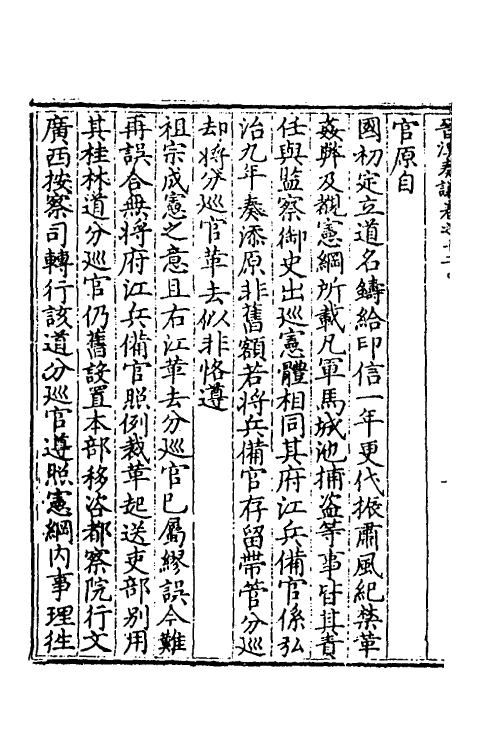 晉溪奏議卷之十二
官原自
國初定立道名鑄給印信一年更代振肅風紀禁革
姦弊及觀憲綱所載凡軍馬城池捕盗等事皆其責
任與監察御史出巡憲體相同其府江兵備官係弘
治九年奏添原非舊額若將兵備官存留帶管分巡
却將分巡官革去似非恪遵
祖宗成憲之意且右江革去分巡官已屬繆誤今難
再誤合無將府江兵備官照例裁革起送吏部别用
其桂林道分巡官仍舊設置本部移咨都察院行文
廣西按察司轉行該道分巡官遵照憲綱内事理徃